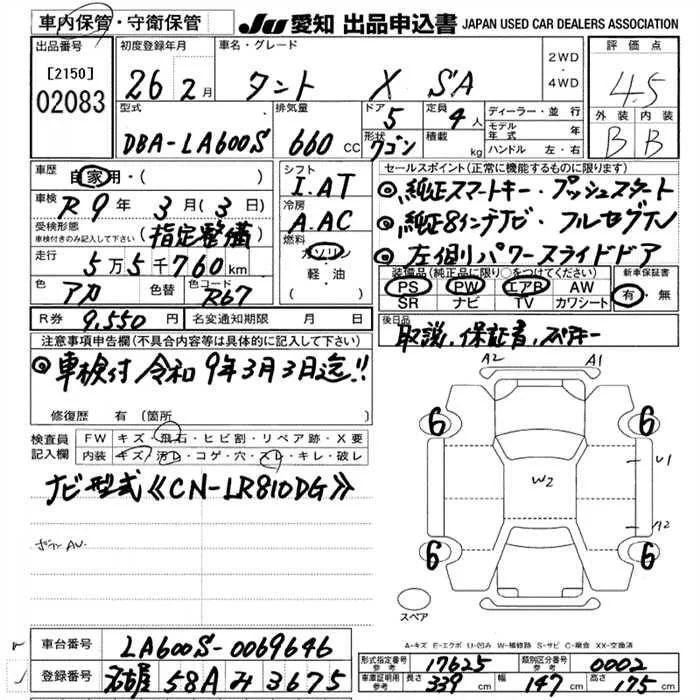 車内保管・守衛保管 JU 愛知 出品申込書 JAPAN USED CAR DEALERS ASSOCIATION
出品番号 [2150] 02083
初度登録年月 26年 2月
車名・グレード タント X SA
2WD・4WD
評価点 4.5
外装 B 内装 B
型式 DBA-LA600S
排気量 660 cc
ドア 5 形状 ワゴン
定員 4人 積載 kg
ディーラー・並行
モデル年式 年
ハンドル 左・右
車歴 自家用・( )
車検 R9年 3月(3日)
受検形態 車検付きのみ記入して下さい (指定整備)
走行 5万5千760km
色 アカ 色替 コード R67
R券 9,550円 名変通知期限 月 日
シフト I.AT
冷房 A.AC
燃料 ガソリン・軽油
セールスポイント(正常に機能するものに限ります)
◎純正スマートキー・プッシュスタート
◎純正8インチナビ・フルセグTV
◎左側パワースライドドア
装備品(純正品に限り○をつけてください) 新車保証書
PS PW エアB AW
SR ナビ TV カワシート
有・無
後日品 取説、保証書、スペアキー
注意事項申告欄(不具合内容等は具体的に記入して下さい)
◎車検付 令和9年3月3日迄!!
修復歴 有(箇所
検査員記入欄
FW キズ・飛石・ヒビ割・リペア跡・X要
内装 キズ・汚レ・コゲ・穴・スレ・キレ・破レ
ナビ型式《CN-LR810DG》
A2 A1
6 6
U1
W2
A2
6 6
スペア
A-キズ E-エクボ U-凹み W-補修跡 S-サビ C-腐食 XX-交換済
車台番号 LA600S-0069646
登録番号 名古屋 58A み 3675
形式指定番号 参考 17625 類別区分番号 参考 0002
車庫証明用 参考 長さ 339cm 幅 147cm 高さ 175cm